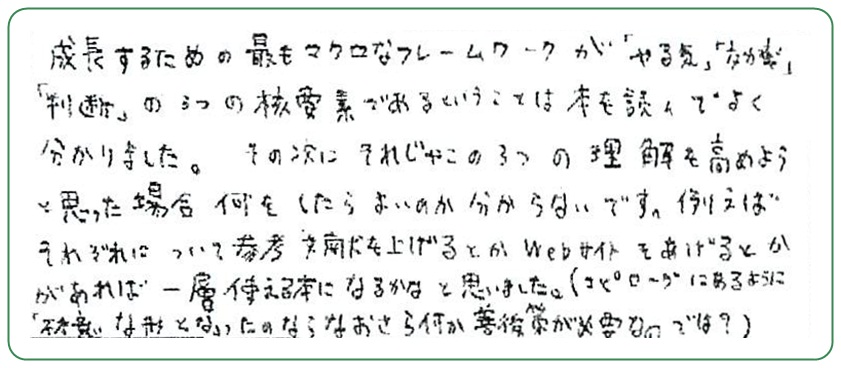 成長するための最もマクロなフレームワークが「やる気」「効率」
「判断」の3つの核要素であるということは本を読んでよく
分かりました。 その次にそれじゃこの3つの理解を高めよう
と思った場合何をしたらよいのか分からないです。例えば
それぞれについて参考文献を上げるとかWebサイトをあげるとか
があれば一層使える本になるかなと思いました。(エピローグにあるように
な形となったのならなおさら何か善後策が必要なのでは?)